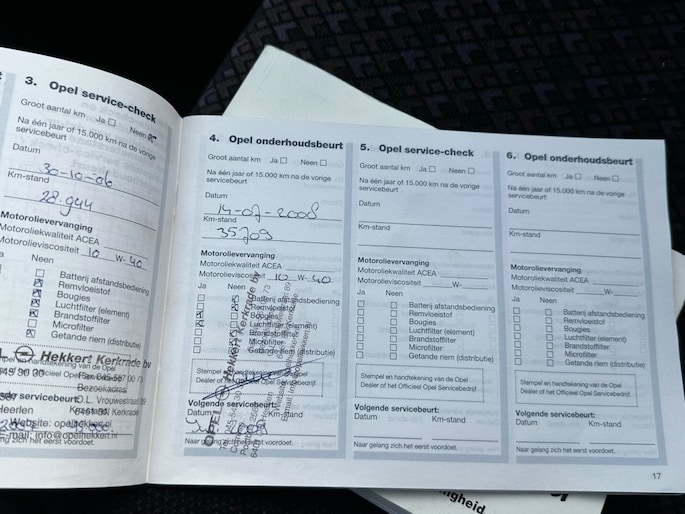 3. Opel service-check
Groot aantal km Ja Neen
Na één jaar of 15.000 km na de vorige
servicebeurt
Datum
30-10-06
Km-stand
28.944
Motorolievervanging
Motoroliekwaliteit ACEA
Motorolieviscositeit 10 W- 40
Neen
Batterij afstandsbediening
Remvloeistof
Bougies
Luchtfilter (element)
Brandstoffilter
Microfilter
Getande riem (distributie)
Hekkert Kerkrade bv
Bezoekadres
O.L. Vrouwestraat
Kerkrade
Heerlen
Website: opelhekkert.nl
E-mail: info@opelhekkert.nl
4. Opel onderhoudsbeurt
Groot aantal km Ja Neen
Na één jaar of 15.000 km na de vorige
servicebeurt
Datum
14-07-2008
Km-stand
35709
Motorolievervanging
Motoroliekwaliteit ACEA
Motorolieviscositeit 10 W- 40
Ja Neen
Batterij afstandsbediening
Remvloeistof
Bougies
Luchtfilter (element)
Brandstoffilter
Microfilter
Getande riem (distributie)
Stempel en handtekening van de Opel
Dealer of het Officieel Opel Servicebedrijf
OPEL Hekkert Kerkrade bv
Volgende servicebeurt:
Datum Km-stand
Naar gelang zich het eerst voordoet.
5. Opel service-check
Groot aantal km Ja Neen
Na één jaar of 15.000 km na de vorige
servicebeurt
Datum
Km-stand
Motorolievervanging
Motoroliekwaliteit ACEA
Motorolieviscositeit W-
Ja Neen
Batterij afstandsbediening
Remvloeistof
Bougies
Luchtfilter (element)
Brandstoffilter
Microfilter
Getande riem (distributie)
Stempel en handtekening van de Opel
Dealer of het Officieel Opel Servicebedrijf
Volgende servicebeurt:
Datum Km-stand
Naar gelang zich het eerst voordoet.
6. Opel onderhoudsbeurt
Groot aantal km Ja Neen
Na één jaar of 15.000 km na de vorige
servicebeurt
Datum
Km-stand
Motorolievervanging
Motoroliekwaliteit ACEA
Motorolieviscositeit W-
Ja Neen
Batterij afstandsbediening
Remvloeistof
Bougies
Luchtfilter (element)
Brandstoffilter
Microfilter
Getande riem (distributie)
Stempel en handtekening van de Opel
Dealer of het Officieel Opel Servicebedrijf
Volgende servicebeurt:
Datum Km-stand
Naar gelang zich het eerst voordoet.
17